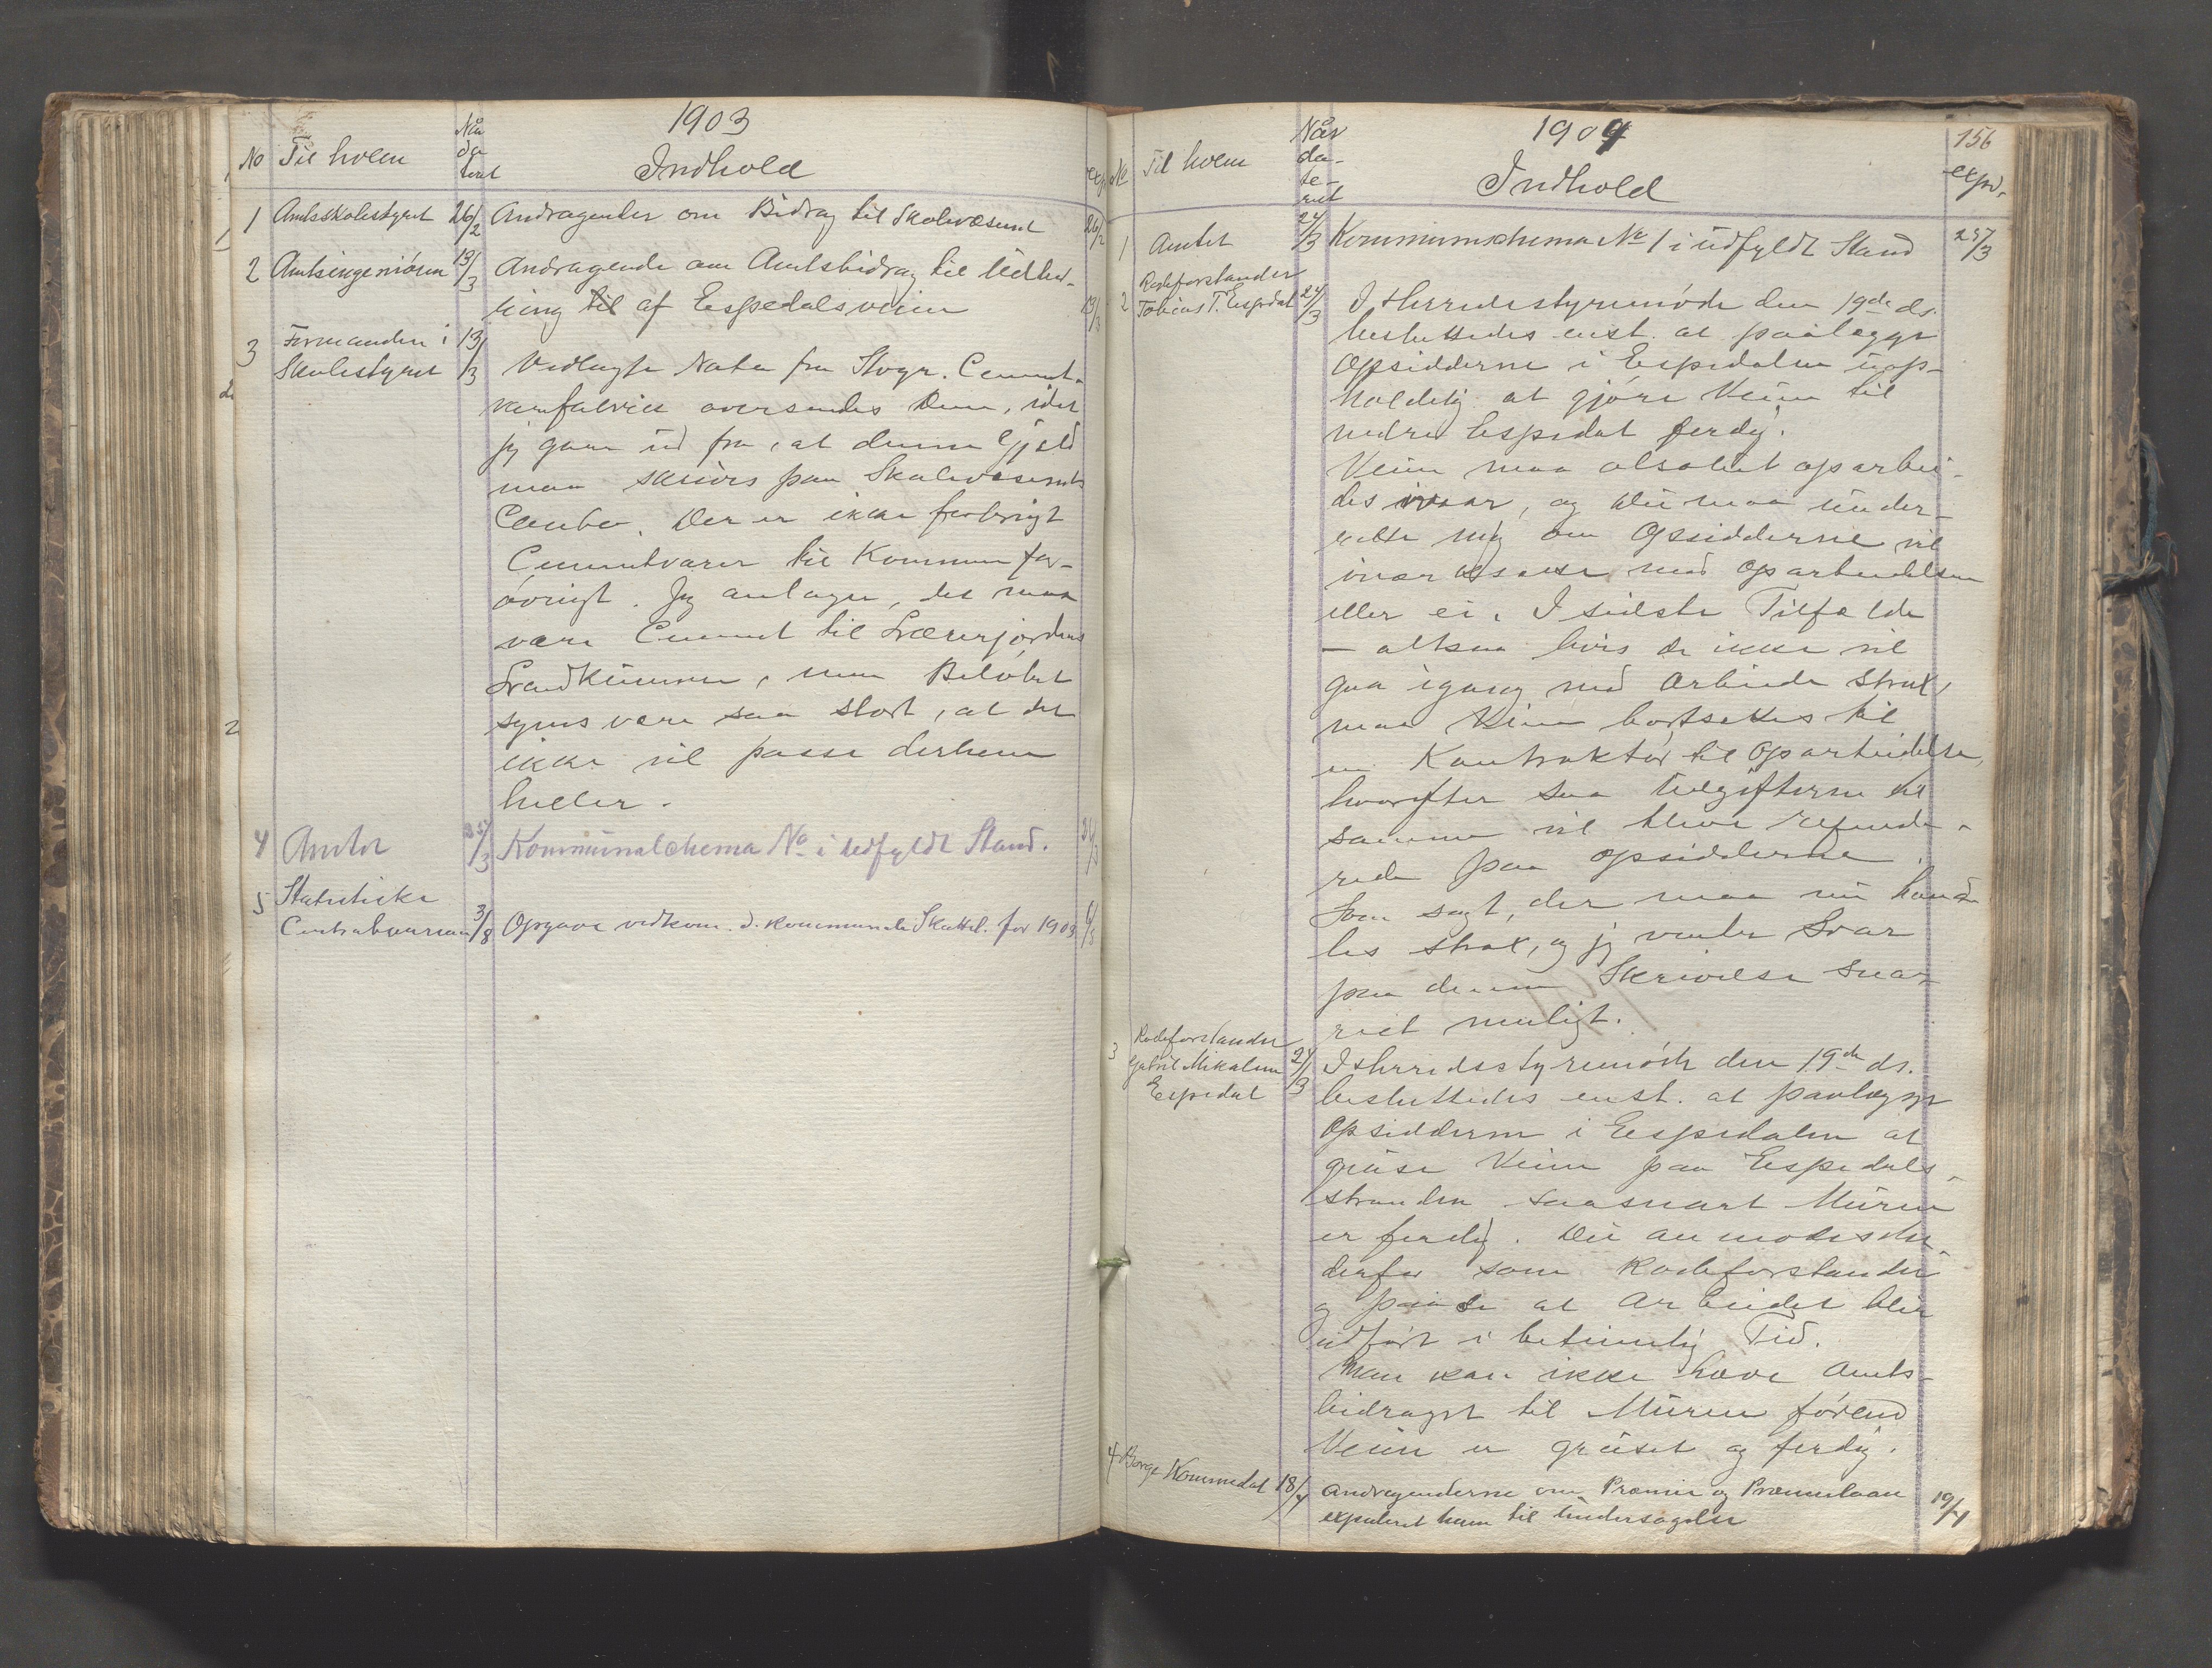 1903
No Til hvem Når da teret Indhold exp.
1 Amtsskolestyret 26/2 Andragender om Bidrag til Skolevæsenet 26/2
2 Amtsingeniøren 13/3 Andragende om Amtsbidrag til Udbed-
ring til af Espedalsveien 13/3
3 Formanden i 13/3
Skolestyret Vedlagte Nota fra Stvgr. Cement-
varefabrik oversendes Dem, idet
jeg gaar ud fra, at denne Gjeld
maa skrives paa Skolevæsenets
Conto. Der er ikke forbrugt
Cementvarer til Kommunen for-
øvrigt. Jeg antager, det maa
være Cement til Lærerjordens
Landkummer, men Beløbet
synes være saa stort, at det
ikke vil passe derhen
heller.
4 Amtet 25/3 Kommunalchema No i udfyldt Stand.
5 Statistiske
Centralbureau 3/8 Opgave vedkom. d. kommunale Skattel. for 1903
1904
156
No Til hvem Når da-te-ret Indhold exped.
1 Amtet 24/3 Kommuneschema No 1 i udfyldt Stand 25/3
Rodeforstander
2 Tobias T. Espedal 24/3 I Herredsstyremøde den 19de ds.
besluttedes enst. at paalægge
Opsidderne i Espedalen uop-
holdelig at gjøre Veien til
nedre Espedal ferdig.
Veien maa absolut oparbei-
des ivaar, og De maa under-
rette mig om Opsidderne vil
ivær ksætte med Oparbeidelsen
eller ei. I sidste Tilfælde
– altsaa hvis de ikke vil
gaa igang med Arbeide strax,
maa Veien bortsættes til
en Kontraktør til Oparbeidelse,
hvorefter saa Udgifterne ved
samme vil blive refunde-
rede paa opsidderne.
Som sagt, der maa nu hand-
les strax, og jeg venter Svar
paa denne Skrivelse snar-
est muligt.
Rodeforstander
3 Gabriel Mikalsen 24/3 I Herredsstyremøde den 19de ds.
Espedal besluttedes enst. at paalægge
Opsidderne i Espedalen at
gruse Veien paa Espedals-
stranden saasnart Muren
er ferdig. De anmodes
derfor som Rodeforstander
og paase at Arbeidet blir
udført i betimelig Tid.
Man kan ikke hæve Amts-
bidraget til Muren førend
Veien er gruset og ferdig.
4 Børge Kommedal 18/4 Andragenderne om Præmie og Præmielaan 19/4
expederet ham til Undersøgelse